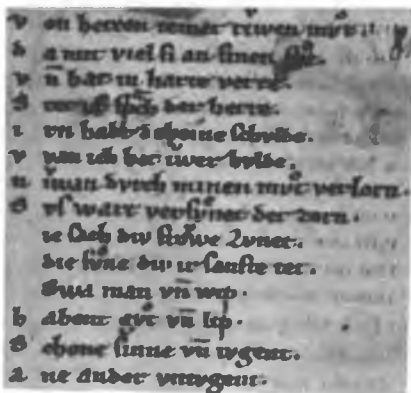 v on herzen iemer riwen mvͦz
d a nur viel si an sinen fvͦz.
v n̄ bat in harte verre.
S
i vn habt d cheine schvlde.
v vm ich het iwer hvlde.
n iman dvrch minen mvͦt verlorn.
S vͦs wart versvͦnet der zorn.
ie doch div frowe Lunet.
die svͦne div ir sanfte tet.
Swa man vn̄ wip.
h abent gvͦt vn̄ lip.
S chone sinne vn̄ ivgent.
a ne ander vntvgent.